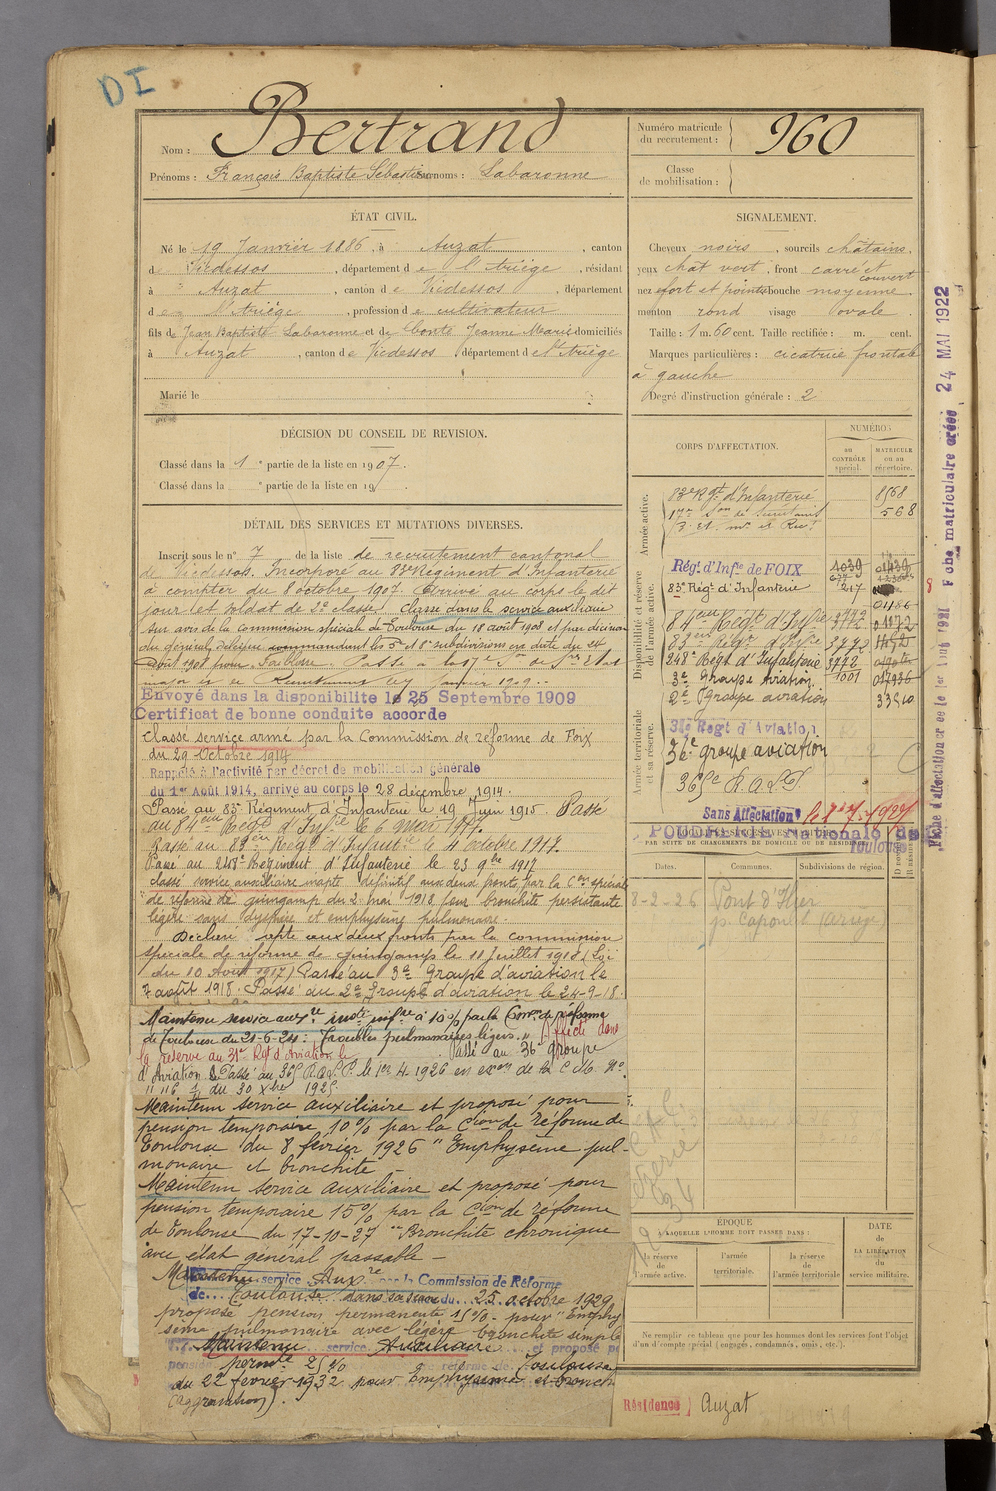 DI
Nom : Bertrand
Numéro matricule du recrutement : 960
Prénoms : François Baptiste Sébastien Surnoms : Labaronne
Classe de mobilisation :
ÉTAT CIVIL.
Né le 19 Janvier 1886, à Auzat, canton
de Vicdessos, département de l'Ariège, résidant
à Auzat, canton de Vicdessos, département
de l'Ariège, profession de cultivateur
fils de Jean Baptiste Labaronne et de Jeanne Marie domiciliés
à Auzat, canton de Vicdessos département de l'Ariège
Marié le
SIGNALEMENT.
Cheveux noirs, sourcils châtains.
yeux chât vert, front carré et couvert
nez fort et pointu bouche moyenne.
menton rond visage ovale.
Taille : 1 m. 60 cent. Taille rectifiée : m. cent.
Marques particulières : cicatrice frontale
à gauche
Degré d'instruction générale : 2
DÉCISION DU CONSEIL DE REVISION.
Classé dans la 1e partie de la liste en 1907.
Classé dans la e partie de la liste en 19
DÉTAIL DES SERVICES ET MUTATIONS DIVERSES.
Inscrit sous le n° 7 de la liste de recrutement cantonal
de Vicdessos. Incorporé au 83e Régiment d'Infanterie
à compter du 8 octobre 1907. Arrivé au corps le dit
jour et soldat de 2e classe. Classé dans le service auxiliaire
sur avis de la commission spéciale de Toulouse du 18 août 1908 et par décision
du général commandant les 5 et 8e subdivisions en date du
août 1908 pour faiblesse. Passé à la 17e Son de Sres d'Etat
major et de Recrutement janvier 1909.
Envoyé dans la disponibilite le 25 Septembre 1909
Certificat de bonne conduite accorde
Classé service armé par la Commission de réforme de Foix
du 29 Octobre 1914
Rappelé à l'activité par décret de mobilisation générale
du 1er Août 1914, arrivé au corps le 28 décembre 1914.
Passé au 83e Régiment d'Infanterie le 19 Juin 1915. Passé
au 84eme Regt d'Infie le 6 1917.
Passé au 83em Regt d'Infantie le 4 octobre 1917.
Passé au 248e Régiment d'Infanterie le 23 9bre 1917
classé service auxiliaire inapte définitif aux deux fronts par la Con spéciale
de réforme de guingamp du 2 mai 1918 pour bronchite persistante
légère sans dyspnée et emphysème pulmonaire.
Déclaré apte aux deux fronts par la commission
spéciale de réforme de guingamp le 11 juillet 1918 (Loi
du 10 Août 1917) Passé au 3e Groupe d'aviation le
7 août 1918. Passé au 2e Groupe d'aviation le 24-9-18.
Maintenu service auxre infre à 10% par la Con de réforme
de Toulouse du 21-6-24 : Troubles pulmonaires légers. Affecté dans
la réserve au 31e Rgt d'Aviation le Passé au 36e groupe
d'Aviation Passé au 365 R.A.L.P. le 1er 4 1926 en exon de la C.M. No
du 30 Xbre 1925.
Maintenu service auxiliaire et proposé pour
pension temporaire 10% par la Cion de réforme de
Toulouse du 8 février 1926 "Emphysème pul-
monaire et bronchite -
Maintenu service auxiliaire et proposé pour
pension temporaire 15% par la Cion de réforme
de Toulouse du 17-10-27 "Bronchite chronique
avec état général passable -
Maintenu service Auxre par la Commission de Réforme
de Toulouse dans sa séance du 25 octobre 1929
proposé pension permanente 15% pour "Emphy
sème pulmonaire avec légère bronchite simple
Maintenu service Auxiliaire et proposé po
pension permte 25% de réforme de Toulouse
du 22 février 1932 pour Emphysème et bronch
(aggravation).
CORPS D'AFFECTATION.
NUMÉROS
AU CONTRÔLE spécial.
MATRICULE ou au répertoire.
Armée active.
83e Rgt d'Infanterie 8568
17e Son de Secrétaires 568
d'Et. mor et Rect
Disponibilité et réserve de l'armée active.
Régt d'Infie de FOIX 1039
83e Régt d'Infanterie 217
84eme Régt d'Infie 3772
83eme Regt d'Infre 3772
248e Regt d'Infanterie 3772
3e Groupe Aviation 1001
2e Groupe aviation
Armée territoriale et sa réserve.
31e Regt d'Aviation
36e groupe aviation
365e R.A.L.P.
Sans Affectation
POUDRERIES Nationale de Toulouse
PAR SUITE DE CHANGEMENTS DE DOMICILE OU DE RÉSIDENCE
Dates. Communes. Subdivisions de région.
8-2-26
ÉPOQUE
À LAQUELLE L'HOMME DOIT PASSER DANS :
la réserve de l'armée active.
l'armée territoriale.
la réserve de l'armée territoriale
DATE de LA LIBÉRATION du service militaire.
Ne remplir ce tableau que pour les hommes dont les services font l'objet
d'un décompte spécial (engagés, condamnés, omis, etc.).
Résidence Auzat
Fiche matriculaire créée 24 MAI 1922